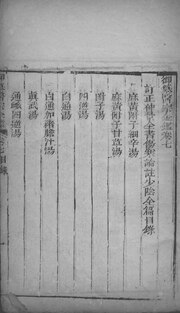 御纂醫宗金鑑卷七
訂正仲景全書傷寒論註少陰全篇目錄
麻黃附子細辛湯
麻黃附子甘草湯
附子湯
四逆湯
白通湯
白通加猪膽汁湯
真武湯
通脈四逆湯